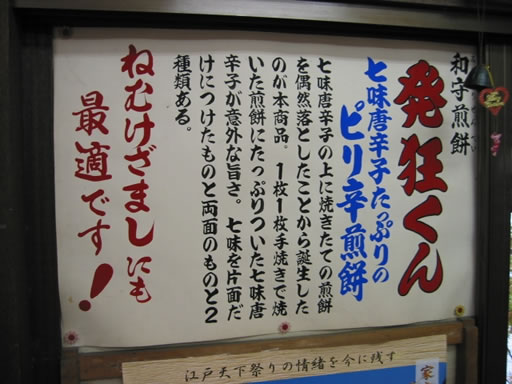 和守煎餅
発狂くん
七味唐辛子たっぷりの
ピリ辛煎餅
七味唐辛子の上に焼きたての煎餅
を偶然落としたことから誕生した
のが本商品。1枚1枚手焼きで焼
いた煎餅にたっぷりついた七味唐
辛子が意外な旨さ。七味を片面だ
けにつけたものと両面のものと2
種類ある。
ねむけざましにも
最適です!
江戸天下祭りの情緒を今に残す
家